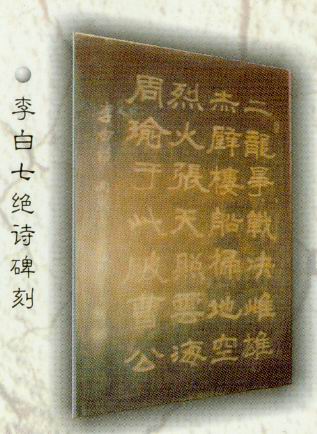 李白七绝诗碑刻
二龍爭戰决雌雄
赤壁樓船掃地空
烈火張天照雲海
周瑜于此破曹公
李白詩